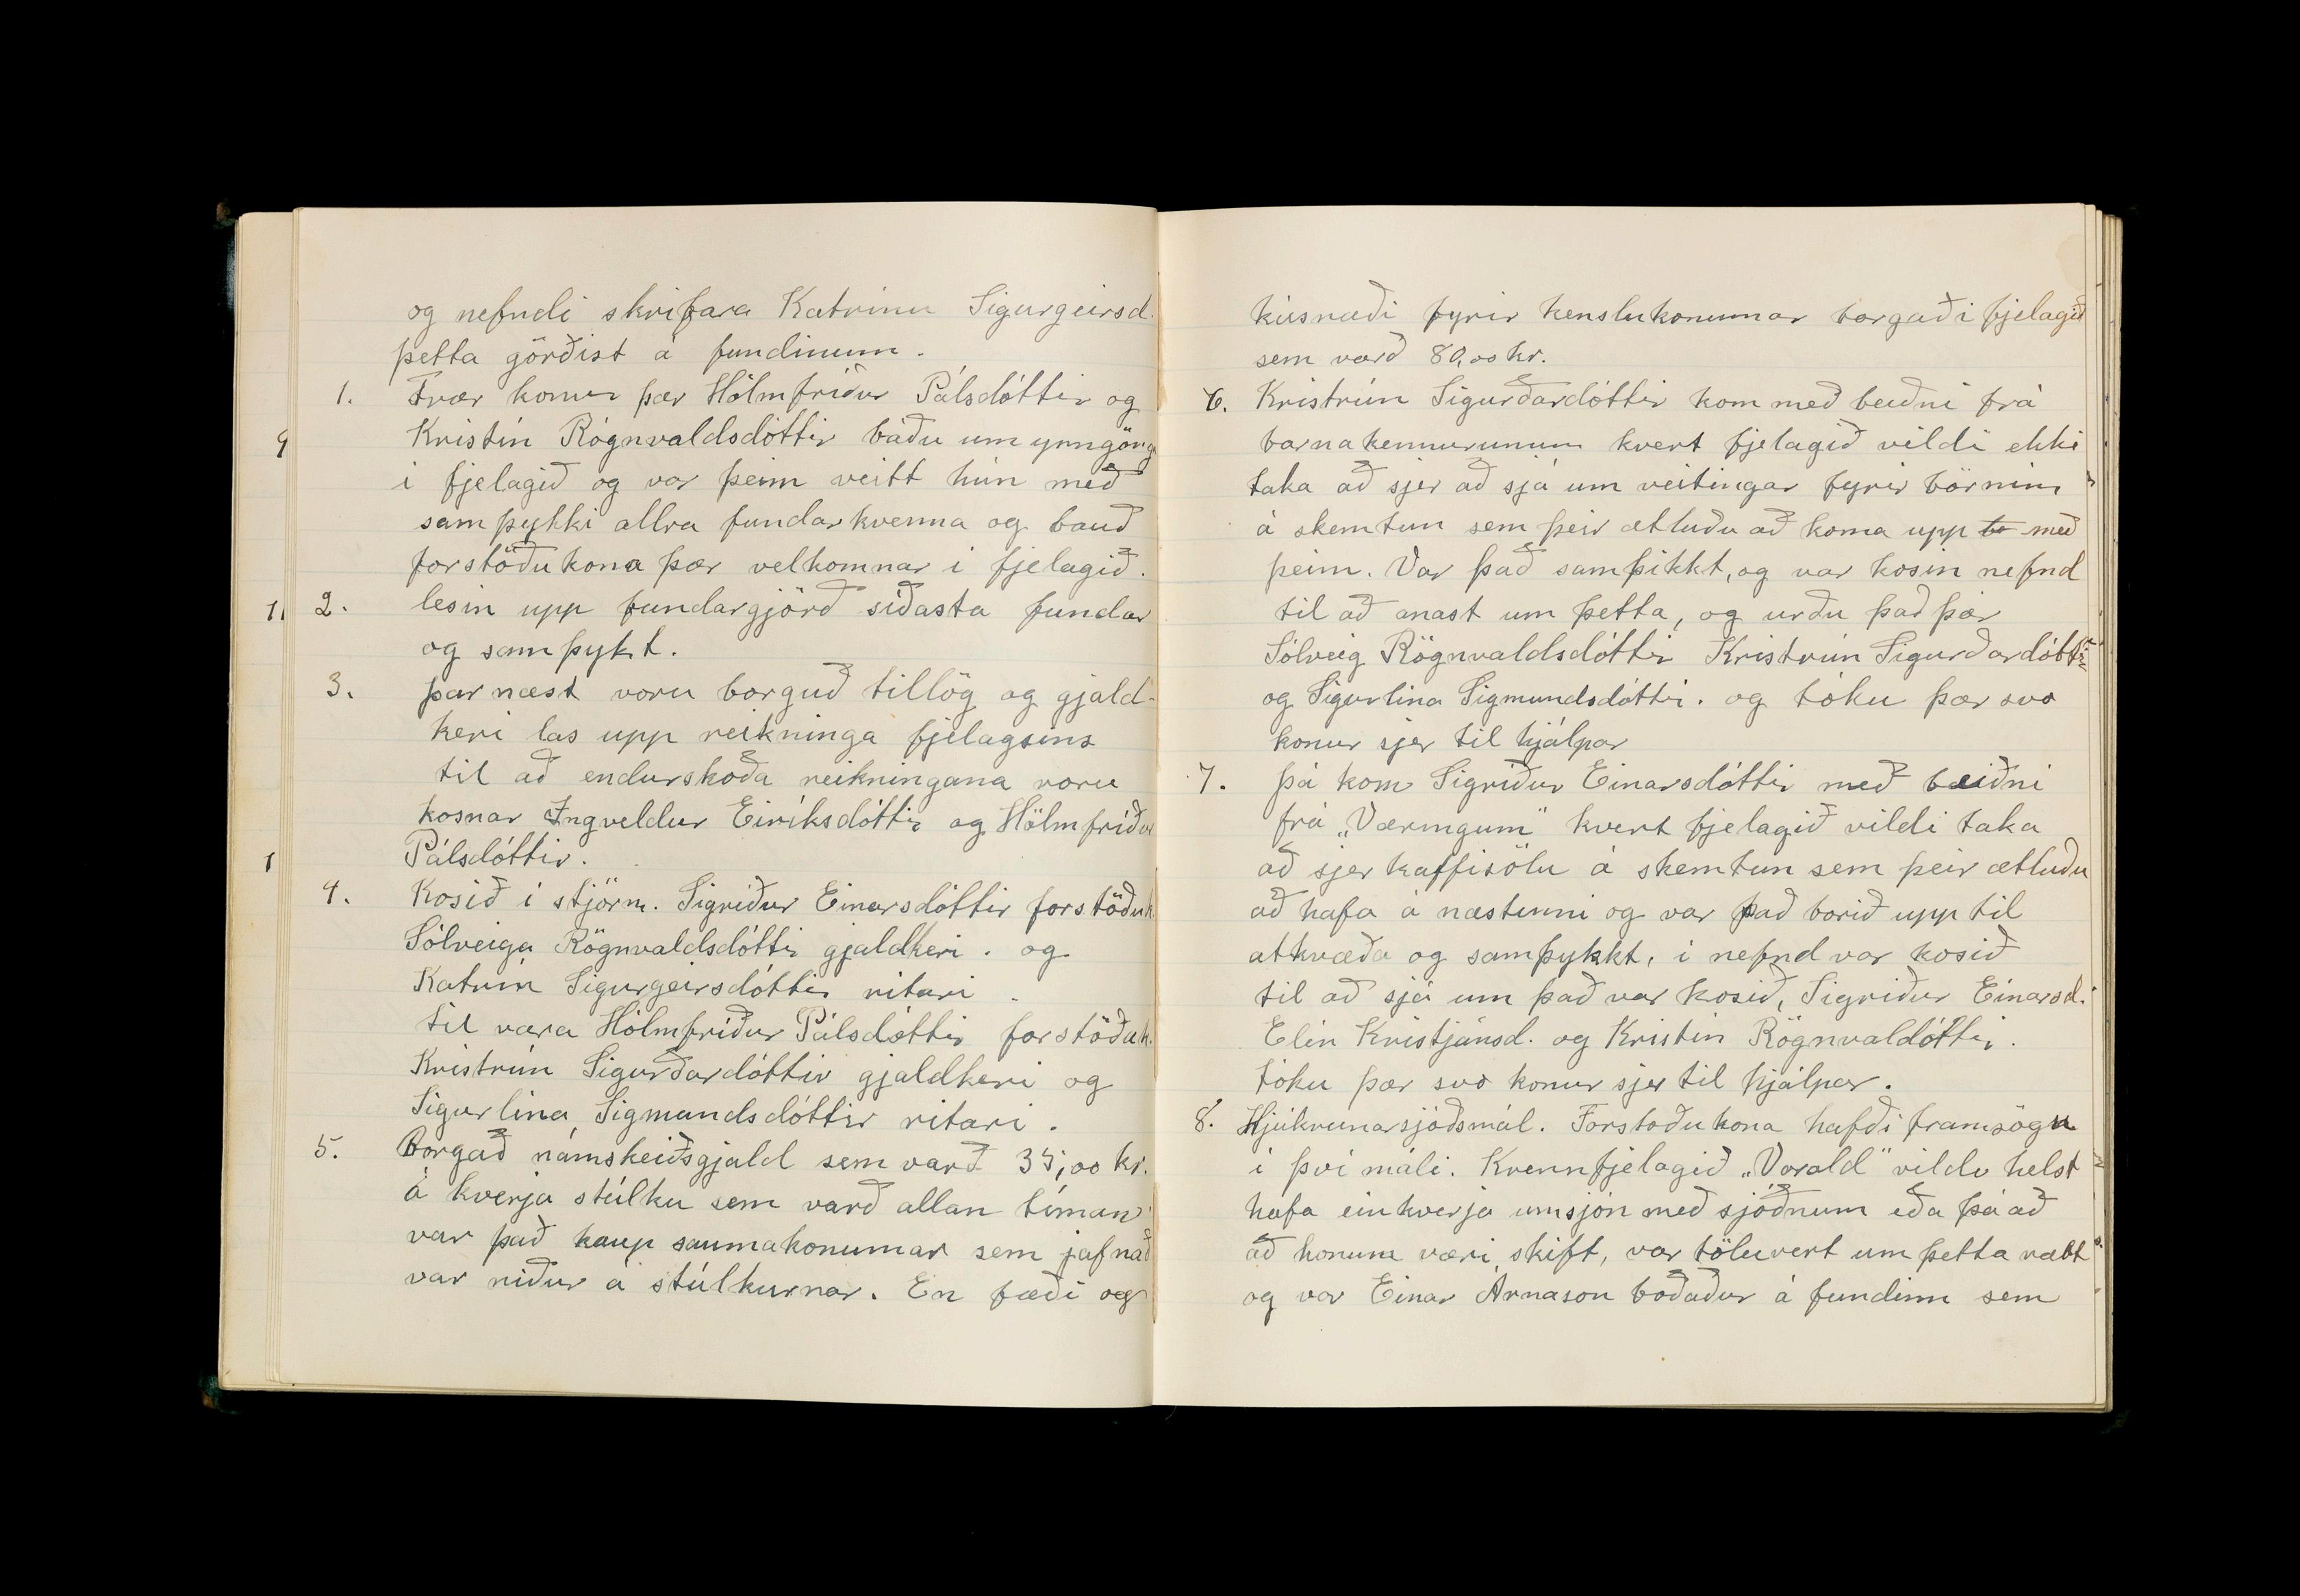 og nefndi skrifara Katrínu Sigurgeirsd.
þetta görðist á fundinum.
1. Tvær konur þær Hólmfríður Pálsdóttir og
Kristín Rögnvaldsdóttir báðu um ynngöng
í fjelagið og var þeim veitt hún með
samþykki allra fundarkvenna og bauð
forstöðukona þær velkomnar í fjelagið.
2. lesin upp fundargjörð síðasta fundar
og samþykt.
3. þar næst voru borguð tillög og gjald-
keri las upp reikninga fjelagsins
til að endurskoða reikningana voru
kosnar Ingveldur Eiríksdóttir og Hólmfríður
Pálsdóttir.
4. Kosið í stjórn. Sigríður Einarsdóttir forstöðuk.
Sólveiga Rögnvaldsdóttir gjaldkeri. og
Katrín Sigurgeirsdóttir ritari.
til vara Hólmfríður Pálsdóttir forstöðuk.
Kristrún Sigurðardóttir gjaldkeri og
Sigurlína Sigmundsdóttir ritari.
5. Borgað námskeiðsgjald sem varð 35,00 kr.
á kverja stúlku sem varð allan tíman
var það kaup saumakonunar sem jafnað
var niður á stúlkurnar. En fæði og
húsnæði fyrir kenslukonunar borgaði fjelagið
sem varð 80,00 kr.
6. Kristrún Sigurðardóttir kom með beiðni frá
barnakennurunum kvert fjelagið vildi ekki
taka að sjer að sjá um veitingar fyrir börnin,
á skemtun sem þeir ætluðu að koma upp með
þeim. Var það samþikkt, og var kosin nefnd
til að anast um þetta, og urðu það þær
Sólveig Rögnvaldsdóttir Kristrún Sigurðardóttir
og Sigurlína Sigmundsdóttir. og tóku þær svo
konur sjer til hjálpar
7. þá kom Sigríður Einarsdóttir með beiðni
frá „Væringum" kvert fjelagið vildi taka
að sjer kaffisölu á skemtun sem þeir ætluðu
að hafa á næstunni og var það borið upp til
atkvæða og samþykkt, í nefnd var kosið
til að sjá um það var kosið, Sigríður Einarsd.
Elín Kristjánsd. og Kristín Rögnvaldóttir.
tóku þær svo konur sjer til hjálpar.
8. Hjúkrunarsjóðsmál. Forstoðukona hafði framsögn
í því máli. Kvennfjelagið „Vorald" vildi helst
hafa einhverja umsjón með sjóðnum eða þá að
að honum væri skift, var töluvert um þetta rætt
og var Einar Árnason boðaður á fundinn sem